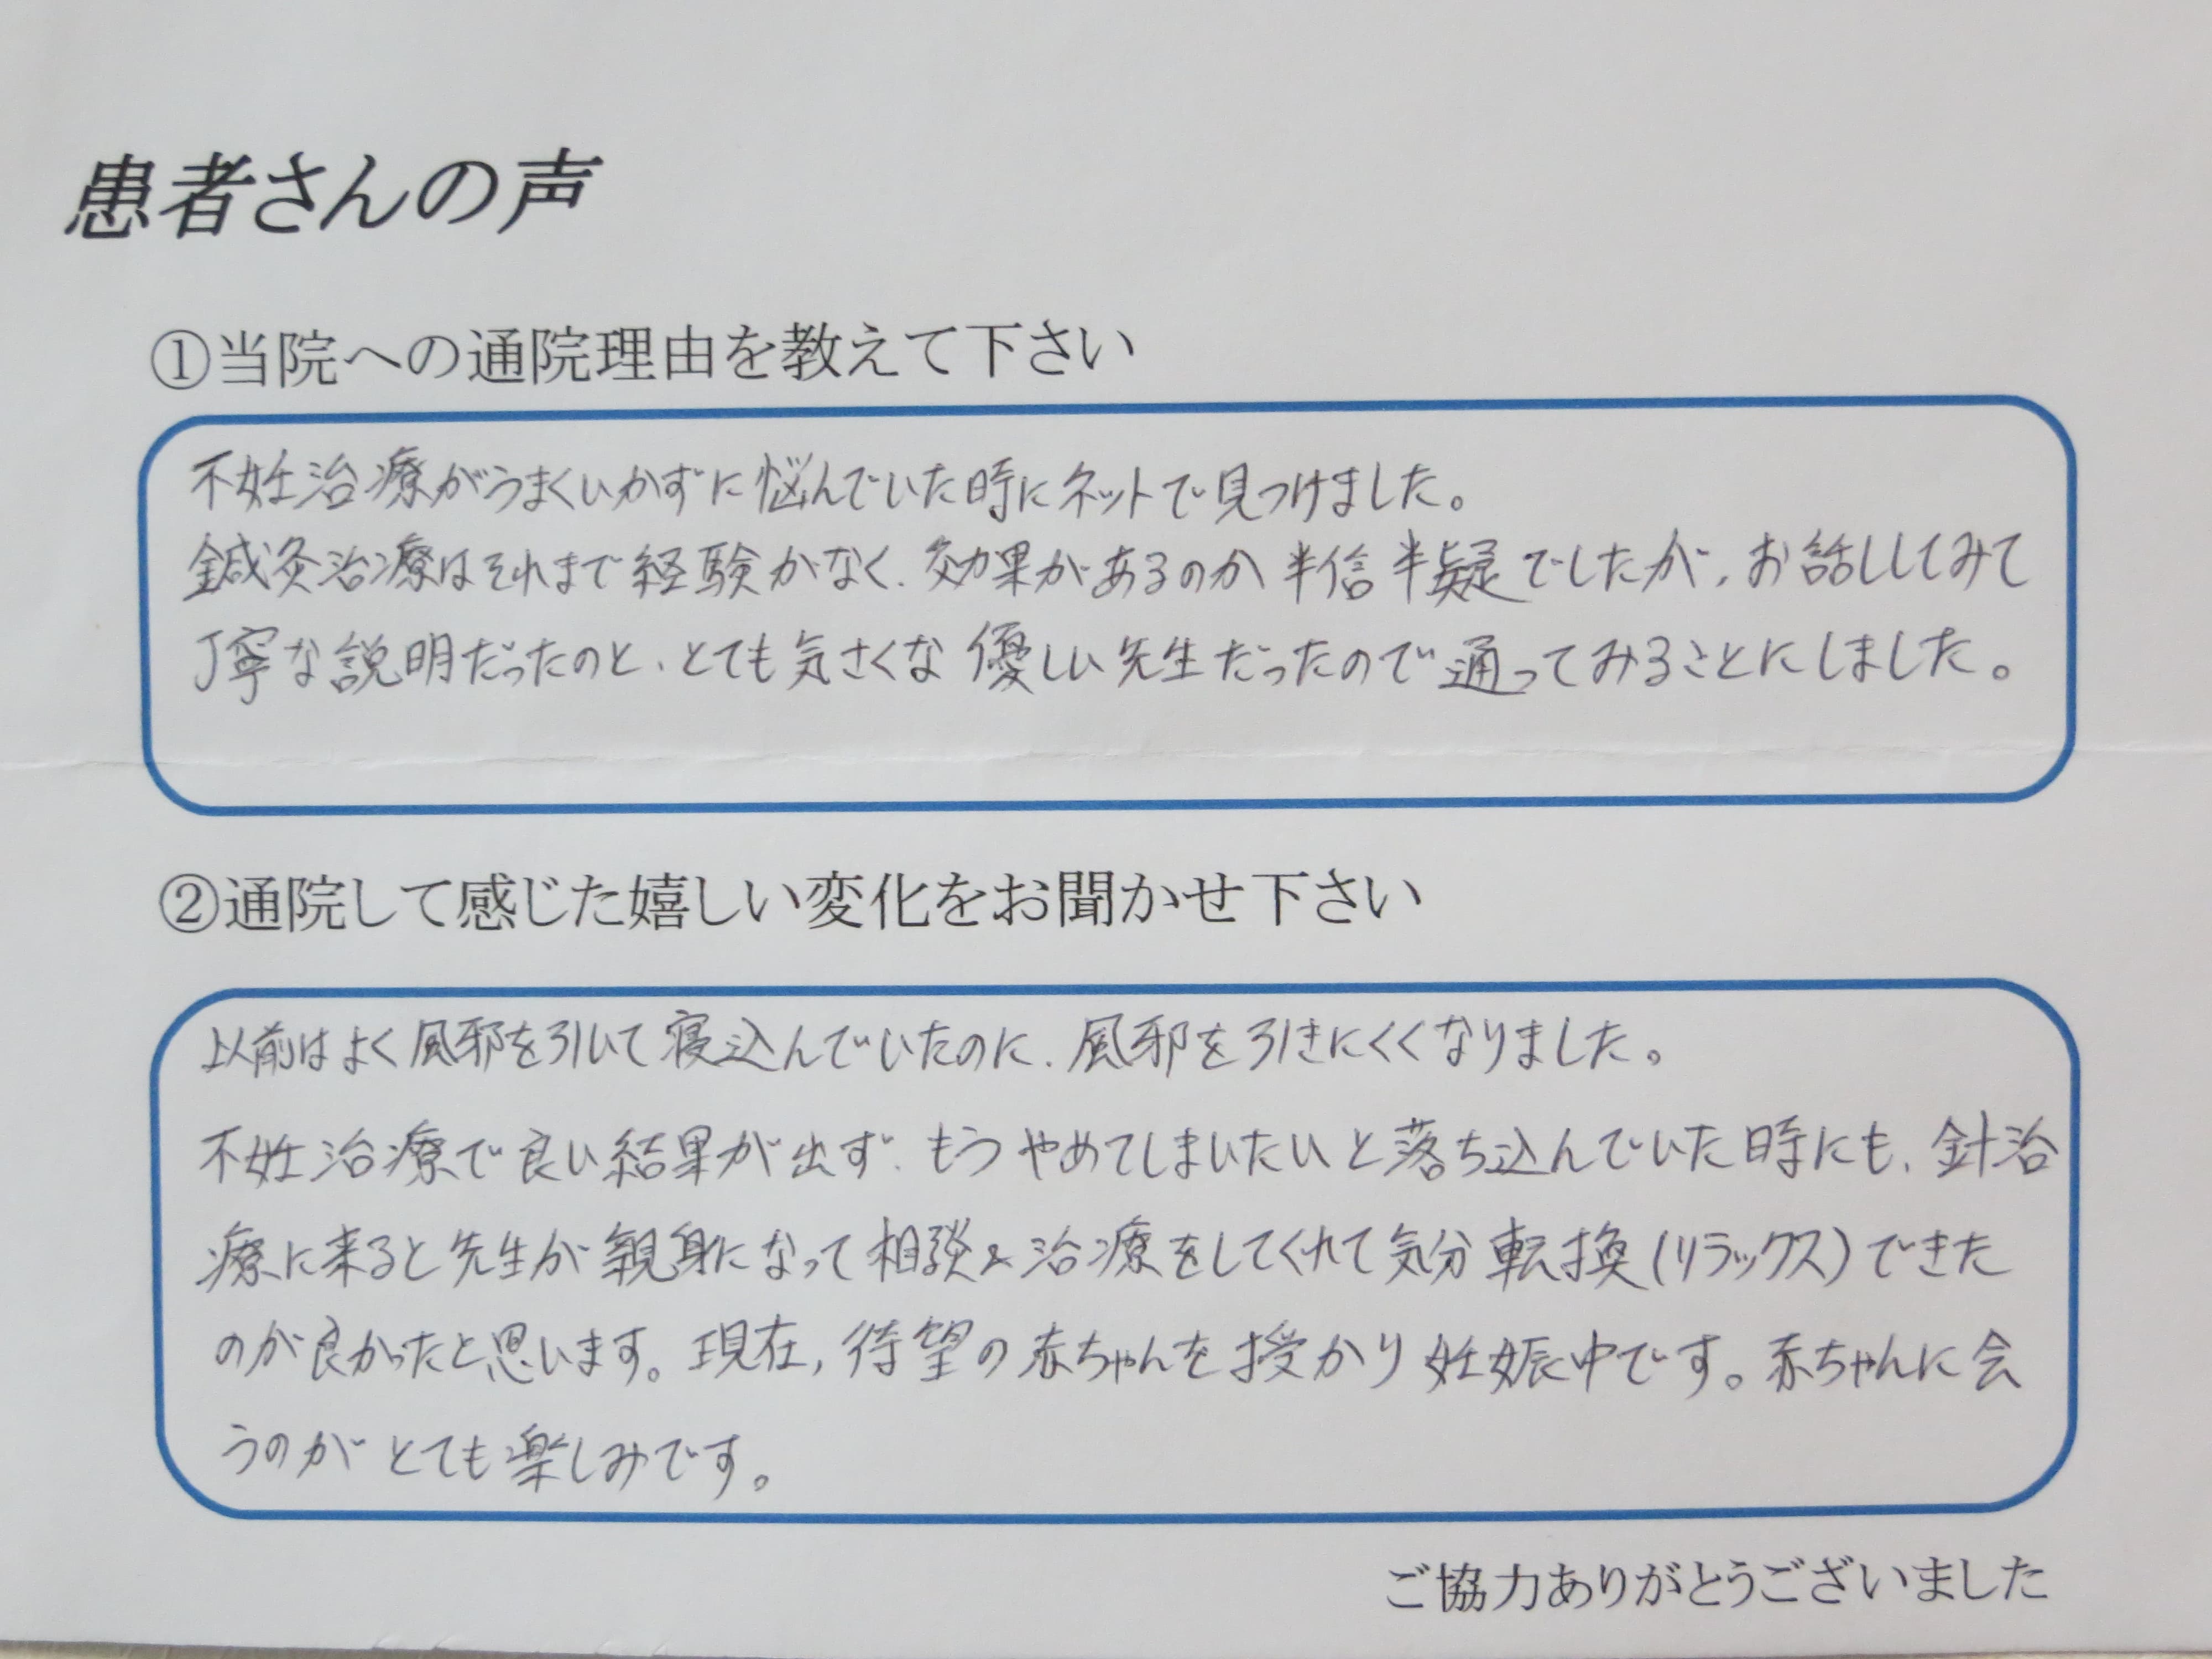 患者さんの声
①当院への通院理由を教えて下さい
不妊治療がうまくいかずに悩んでいた時にネットで見つけました。
鍼灸治療はそれまで経験がなく、効果があるのか半信半疑でしたが、お話ししてみて
丁寧な説明だったのと、とても気さくな優しい先生だったので通ってみることにしました。
②通院して感じた嬉しい変化をお聞かせ下さい
以前はよく風邪を引いて寝込んでいたのに、風邪を引きにくくなりました。
不妊治療で良い結果が出ず、もうやめてしまいたいと落ち込んでいた時にも、針治
療に来ると先生が親身になって相談&治療をしてくれて気分転換(リラックス)できた
のが良かったと思います。現在、待望の赤ちゃんを授かり妊娠中です。赤ちゃんに会
うのがとても楽しみです。
ご協力ありがとうございました